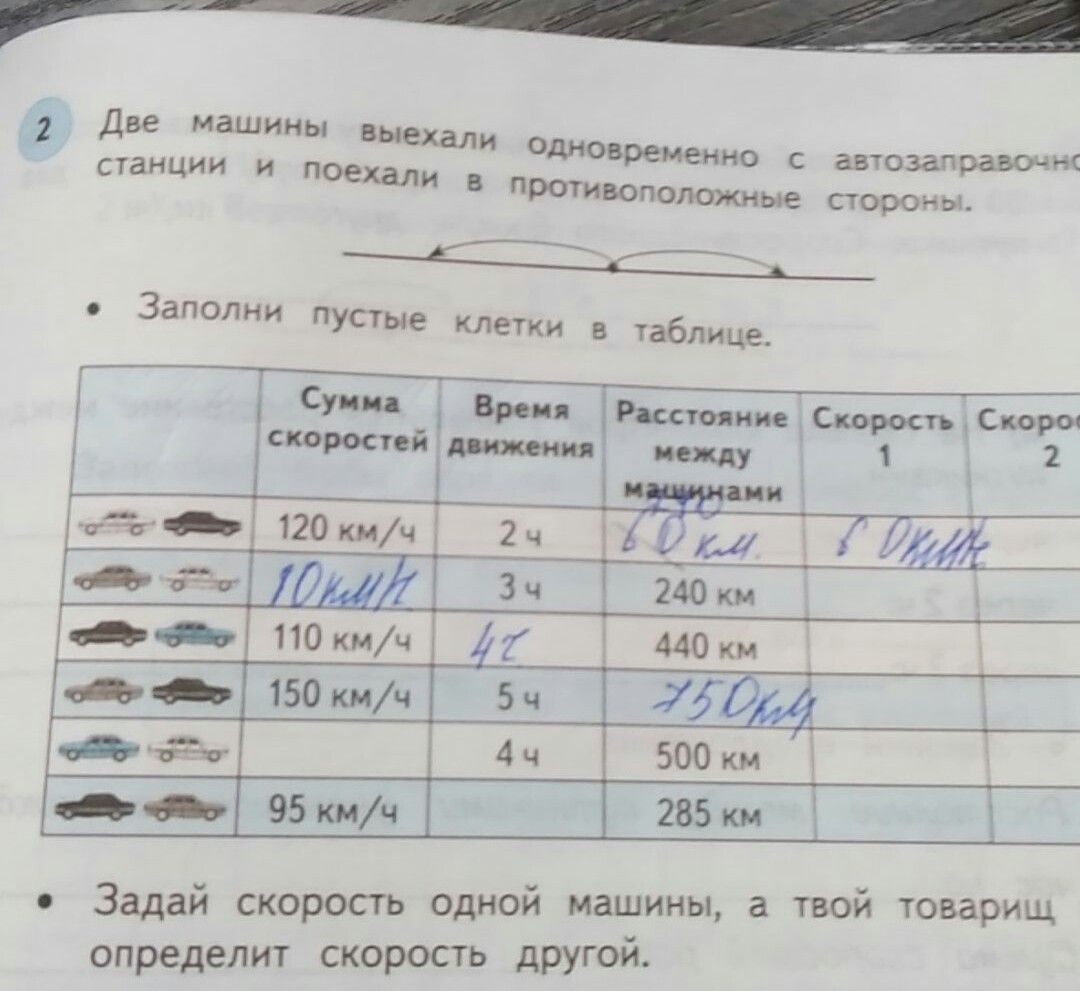 2
Две машины выехали одновременно с автозаправочно
станции и поехали в противоположные стороны.
• Заполни пустые клетки в таблице.
Сумма скоростей Время движения Расстояние между машинами Скорость 1 Скорос 2
120 км/ч 2 ч 60 км. 60км/ч
10км/ч 3 ч 240 км
110 км/ч 4ч 440 км
150 км/ч 5 ч 750км
4 ч 500 км
95 км/ч 285 км
• Задай скорость одной машины, а твой товарищ
определит скорость другой.